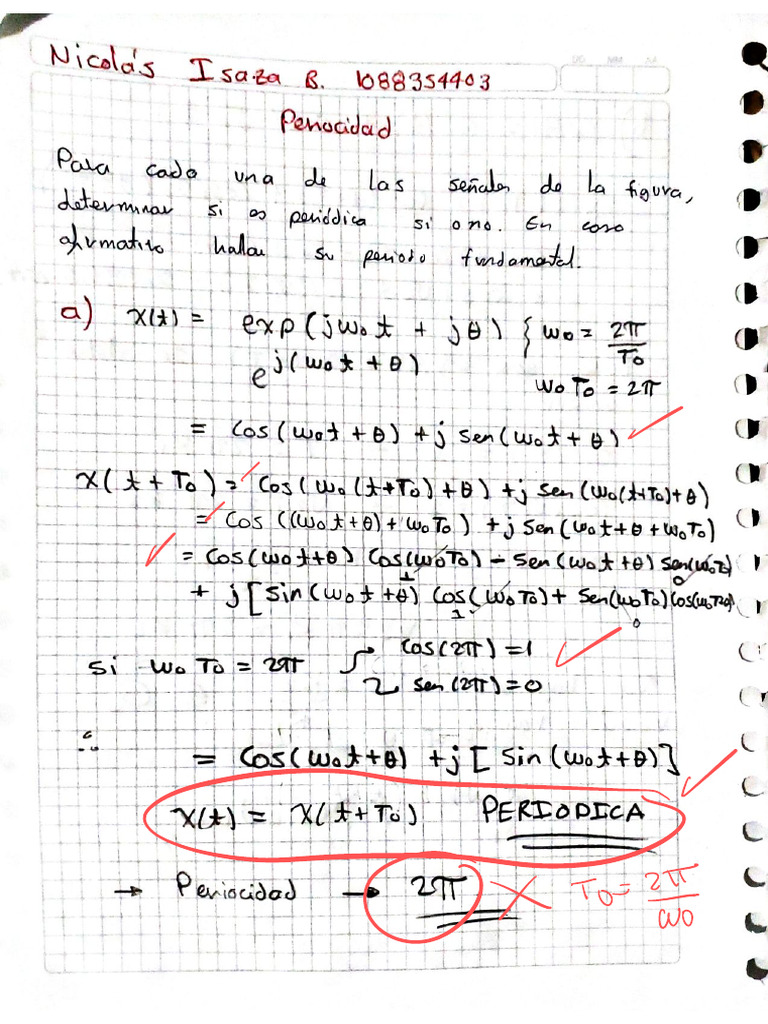 Nicolás Isaza B. 1088354403
Periocidad
Para cada una de las señales de la figura,
determinar si es periódica si o no. En caso
afirmativo hallar su periodo fundamental.
a) x(t) = exp(jω₀t + jθ) { ω₀ = 2π/T₀
e^{j(ω₀t + θ)} ω₀T₀ = 2π
= Cos(ω₀t + θ) + j Sen(ω₀t + θ) ✓
x(t + T₀) = Cos(ω₀(t+T₀) + θ) + j Sen(ω₀(t+T₀)+θ)
= Cos((ω₀t+θ) + ω₀T₀) + j Sen(ω₀t+θ + ω₀T₀)
= Cos(ω₀t+θ) Cos(ω₀T₀) - Sen(ω₀t+θ) Sen(ω₀T₀)
1 0
+ j [Sin(ω₀t+θ) Cos(ω₀T₀) + Sen(ω₀T₀) Cos(
1 0
si ω₀T₀ = 2π Cos(2π) = 1
Sen(2π) = 0
∴ = Cos(ω₀t+θ) + j [Sin(ω₀t+θ)]
x(t) = x(t + T₀) PERIODICA
→ Periocidad → 2π X T₀ = 2π/ω₀